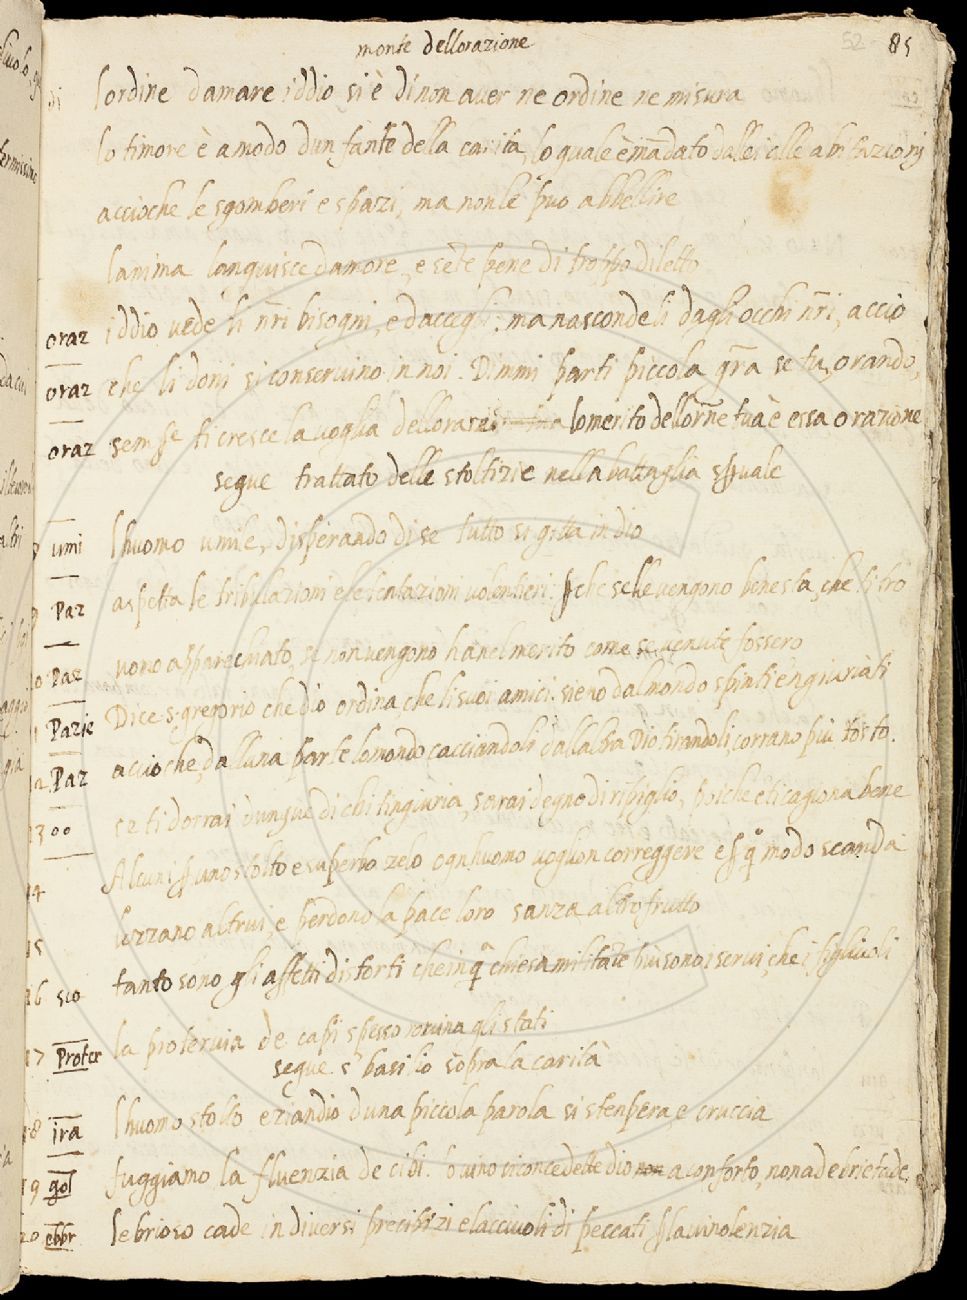 monte dellorazione 52 85
di lordine damare iddio si è di non aver ne ordine ne misura
lo timore è a modo dun fante della carità, lo quale è mādato dalle celle
accioche le sgomberi e spazi, ma non le può abbellire
lanima languisce damore, e sete pene di troppo diletto
oraz iddio vede li nr̄i bisogni, e daccegli: ma nascondeli dagli occhi nr̄i, acciò
oraz che li doni si conservino in noi. Dimmi parti piccola gr̄a se tu, orando,
oraz sempre ti cresce la voglia dellorare lo merito dellor̄ne tua è essa orazione
segue trattato delle stoltizie nella battaglia sp̄uale
umi lhuomo umile, disperando di se tutto si gitta in dio
Paz aspetta le tribulazioni e le tentazioni volentieri: p̱che se le vengono bene sta, che ti tro
Paz vono apparecchiato, se non vengono hanel merito come se venute fossero
Pazie Dice s. gregorio che dio ordina, che li suoi amici sieno dal mondo spinti e ngiuriati
12 Paz accioche, dalluna parte lo mondo cacciandoli e dallaltra Dio tirandoli, corrano più tosto.
13 oo se ti dorrai dunque di chi tingiuria, sarai degno di ripiglio, poiche e ti cagiona bene
14 Alcuni p̱ uno stolto e superbo zelo ogn huomo voglion correggere e p̱ q̊ modo scanda
15 lezzano altrui, e perdono la pace loro sanza altro frutto
16 sco tanto sono gli affetti distorti che in q̄ chiesa militāte più sono i servi, che i figliuoli
17 Proter la protervia de capi spesso rovina gli stati
segue s. basilio sopra la carità
18 ira lhuomo stolto eziandio duna piccola parola si stempera, e cruccia
19 gol fuggiamo la fluenzia de cibi. lo vino si concedette dio non a conforto, non ad ebrietade,
20 ebbr lebrioso cade in diversi precipizi e lacciuoli di peccati p̱ la vinolenzia